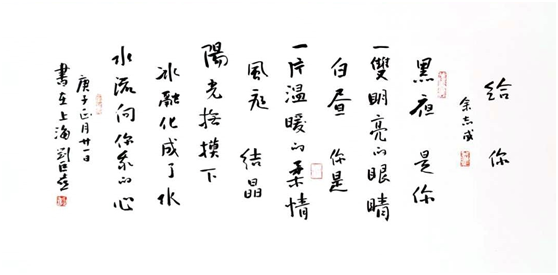 給你
余志成
黑夜 是你
一雙明亮的眼睛
白昼 你是
一片溫暖的柔情
風 結晶
陽光撫摸下
冰融化成了水
水流向你 的心
庚子正月廿一日
書在上海劉巨